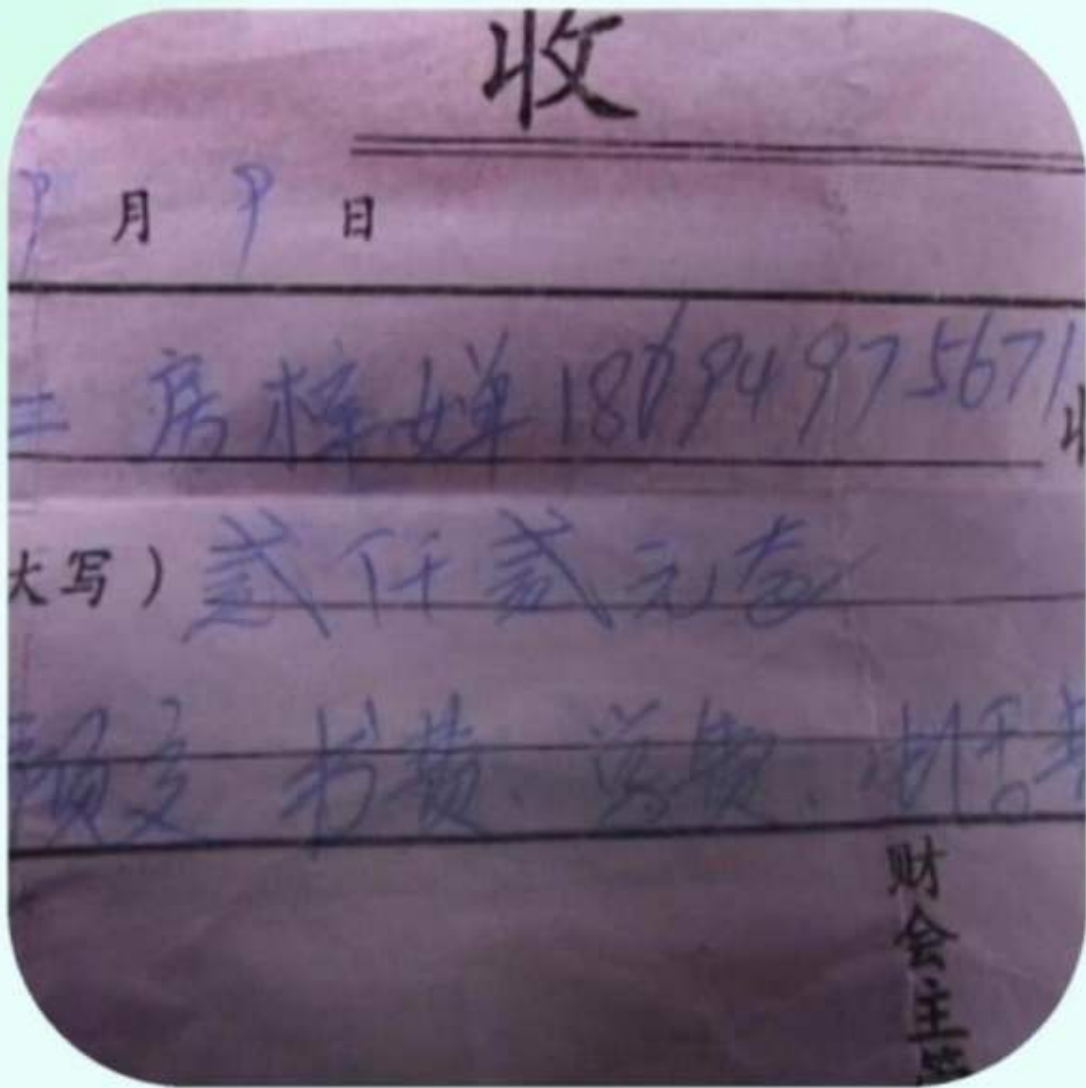 收
9月9日
二 房梓婵 18694975671 收
大写）贰仟贰元整
预交 书费、学费、
财会主管